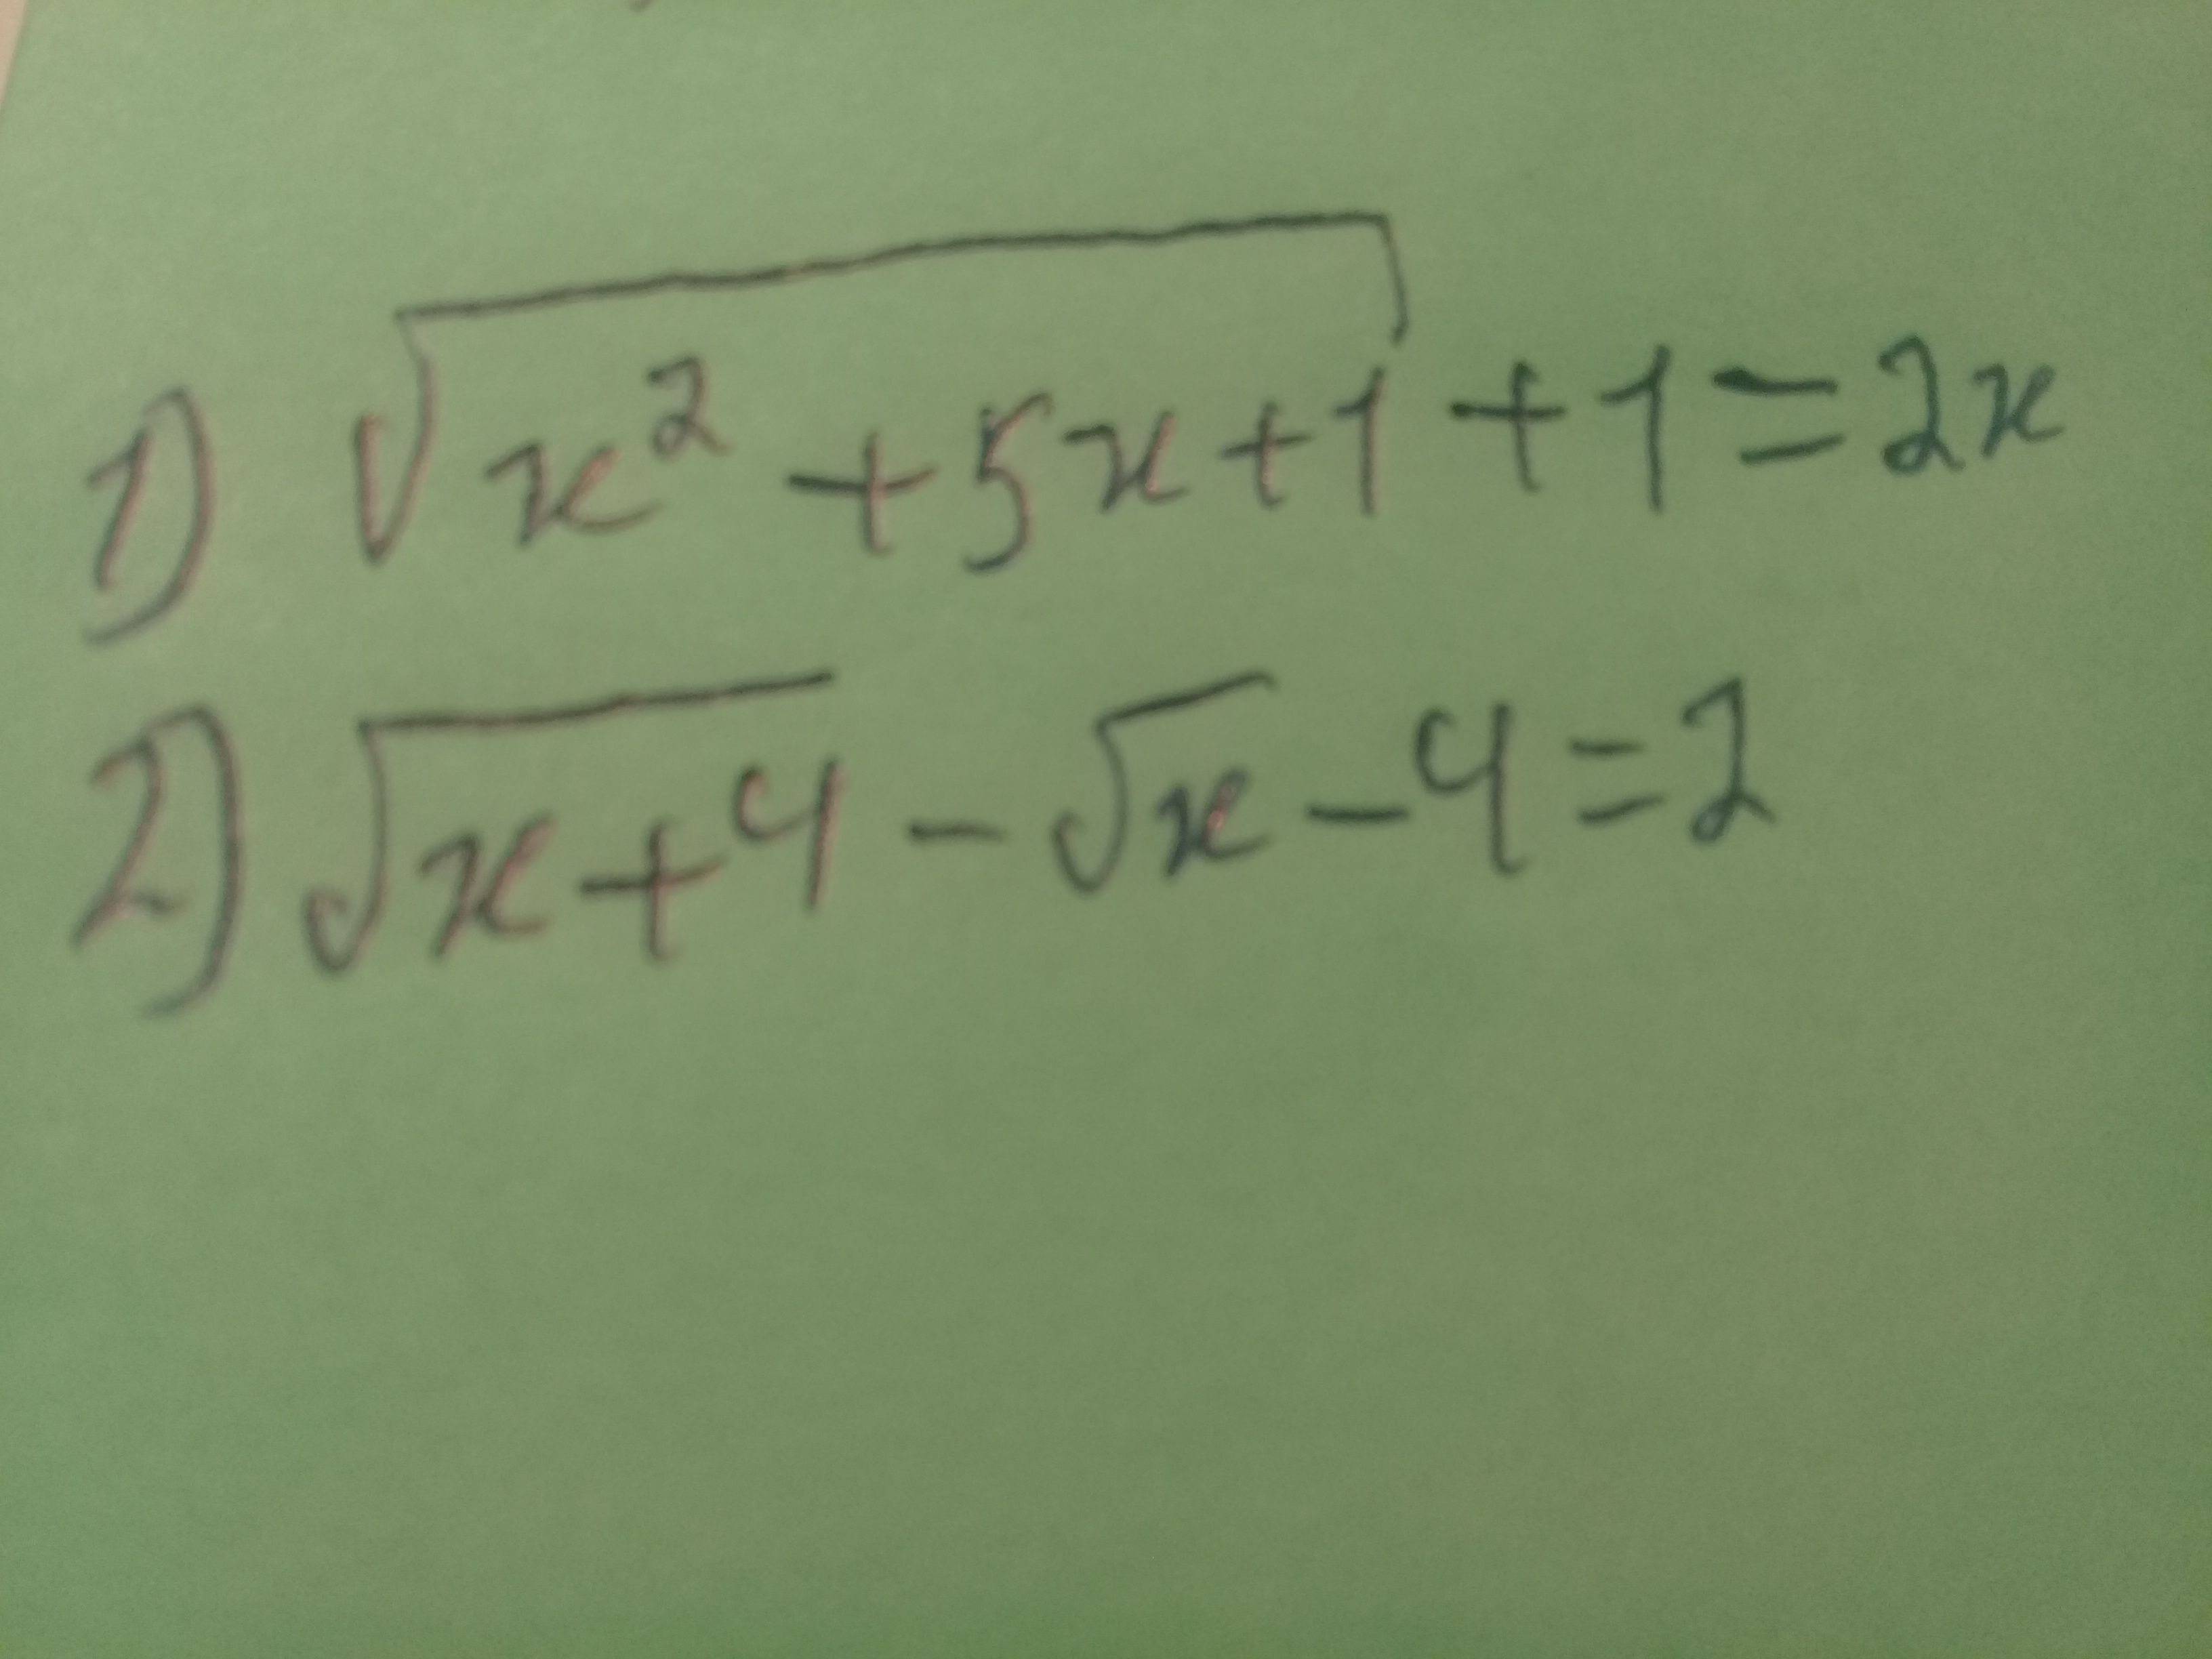 1) √(x² + 5x + 1) + 1 = 2x
2) √(x + 4) - √x - 4 = 2